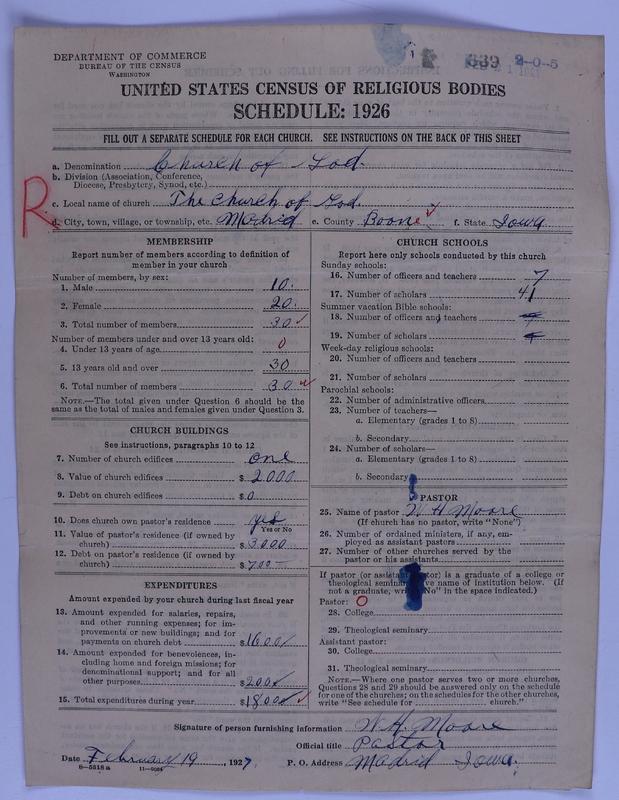 DEPARTMENT OF COMMERCE
BUREAU OF THE CENSUS
WASHINGTON
839 2-0-5
UNITED STATES CENSUS OF RELIGIOUS BODIES
SCHEDULE: 1926
FILL OUT A SEPARATE SCHEDULE FOR EACH CHURCH. SEE INSTRUCTIONS ON THE BACK OF THIS SHEET
R
a. Denomination Church of God.
b. Division (Association, Conference,
Diocese, Presbytery, Synod, etc.)
c. Local name of church The Church of God
d. City, town, village, or township, etc. Madrid e. County Boone f. State Iowa
MEMBERSHIP
Report number of members according to definition of
member in your church
Number of members, by sex:
1. Male 10.
2. Female 20.
3. Total number of members 30
Number of members under and over 13 years old:
4. Under 13 years of age 0
5. 13 years old and over 30
6. Total number of members 30
NOTE.—The total given under Question 6 should be
the same as the total of males and females given under Question 3.
CHURCH BUILDINGS
See instructions, paragraphs 10 to 12
7. Number of church edifices one
8. Value of church edifices $ 2000.
9. Debt on church edifices $ 0
10. Does church own pastor's residence yes
Yes or No
11. Value of pastor's residence (if owned by
church) $ 3000
12. Debt on pastor's residence (if owned by
church) $ 700
EXPENDITURES
Amount expended by your church during last fiscal year
13. Amount expended for salaries, repairs,
and other running expenses; for im-
provements or new buildings; and for
payments on church debt $ 1600
14. Amount expended for benevolences, in-
cluding home and foreign missions; for
denominational support; and for all
other purposes $ 200
15. Total expenditures during year $ 1800
CHURCH SCHOOLS
Report here only schools conducted by this church
Sunday schools:
16. Number of officers and teachers 7
17. Number of scholars 41
Summer vacation Bible schools:
18. Number of officers and teachers
19. Number of scholars
Week-day religious schools:
20. Number of officers and teachers
21. Number of scholars
Parochial schools:
22. Number of administrative officers
23. Number of teachers—
a. Elementary (grades 1 to 8)
b. Secondary
24. Number of scholars—
a. Elementary (grades 1 to 8)
b. Secondary
PASTOR
25. Name of pastor W H Moore
(If church has no pastor, write "None")
26. Number of ordained ministers, if any, em-
ployed as assistant pastors
27. Number of other churches served by the
pastor or his assistants
If pastor (or assistant pastor) is a graduate of a college or
theological seminary, give name of institution below. (If
not a graduate, write "No" in the space indicated.)
Pastor: O
28. College
29. Theological seminary
Assistant pastor:
30. College
31. Theological seminary
NOTE.—Where one pastor serves two or more churches,
Questions 28 and 29 should be answered only on the schedule
for one of the churches; on the schedules for the other churches,
write "See schedule for church."
Signature of person furnishing information W. H. Moore
Official title Pastor
Date February 19, 1927 P. O. Address Madrid Iowa.
8—5518a 11—9064